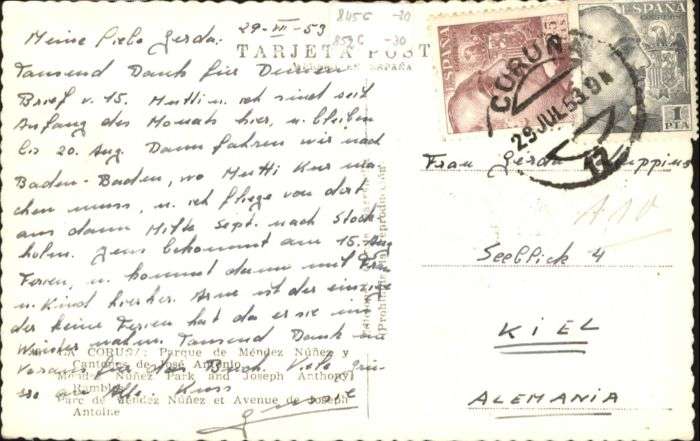 845C -30
853C -30
29-VII-53
Meine liebe Gerda:
TARJETA POST
ESPAÑA
Tausend Dank für Deinen
Brief v. 15. Mutti u. ich sind seit
Anfang des Monats hier, u. bleiben
bis 20. Aug. Dann fahren wir nach
Baden-Baden, wo Mutti Kur ma-
chen muss, u. ich fliege von dort
aus dann Mitte Sept. nach Stock-
holm. Jens bekommt am 15. Aug
Ferien, u. kommt dann mit Frau
u. Kind hierher. Arne ist der einzige
der keine Ferien hat da er sie im
Winter nahm. Tausend Dank im
Voraus für das Buch. Viele Grüs-
se an alle. Kuss
LA CORUÑA: Parque de Méndez Núñez y
Cantones de José Antonio
Méndez Núñez Park and Joseph Anthony
Rambles
Parc de Méndez Núñez et Avenue de Joseph
Antoine
Prohibida la reproducción
ESPAÑA
CORREOS
ESPAÑA
1 PTA
CORUÑA
29 JUL 53 9M
12
Frau Gerda
Seeblick 4
KIEL
ALEMANIA